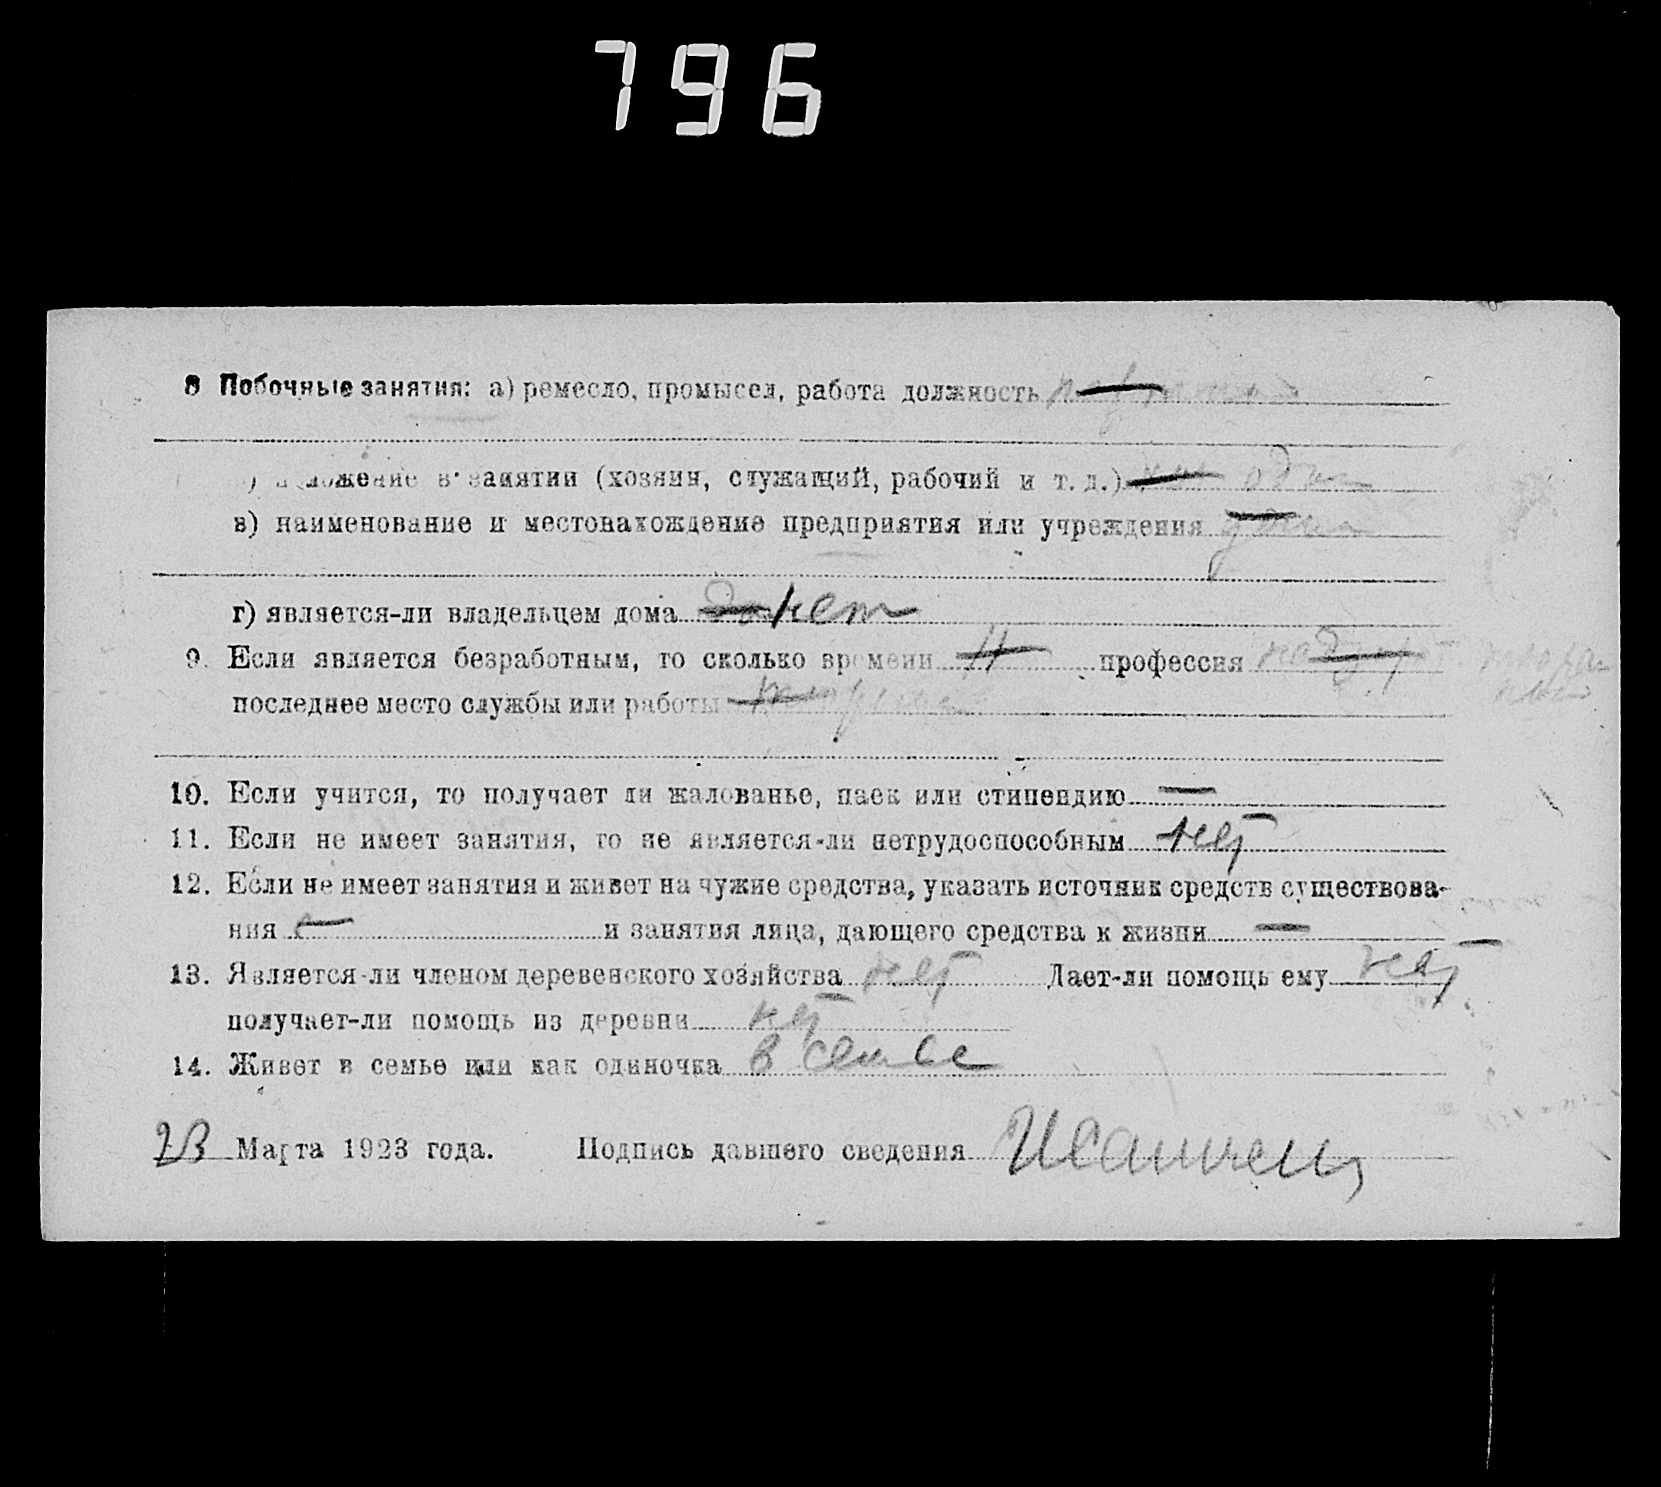 796
8 Побочные занятия: а) ремесло, промысел, работа должность —
) положение в занятии (хозяин, служащий, рабочий и т. д.) —
в) наименование и местонахождение предприятия или учреждения —
г) является-ли владельцем дома нет
9. Если является безработным, то сколько времени — профессия —
последнее место службы или работы —
10. Если учится, то получает ли жалованье, паек или стипендию —
11. Если не имеет занятия, то не является-ли нетрудоспособным нет
12. Если не имеет занятия и живет на чужие средства, указать источник средств существова-
ния — и занятия лица, дающего средства к жизни —
13. Является-ли членом деревенского хозяйства нет Дает-ли помощь ему нет
получает-ли помощь из деревни нет
14. Живет в семье или как одиночка в семье
23 Марта 1923 года. Подпись давшего сведения